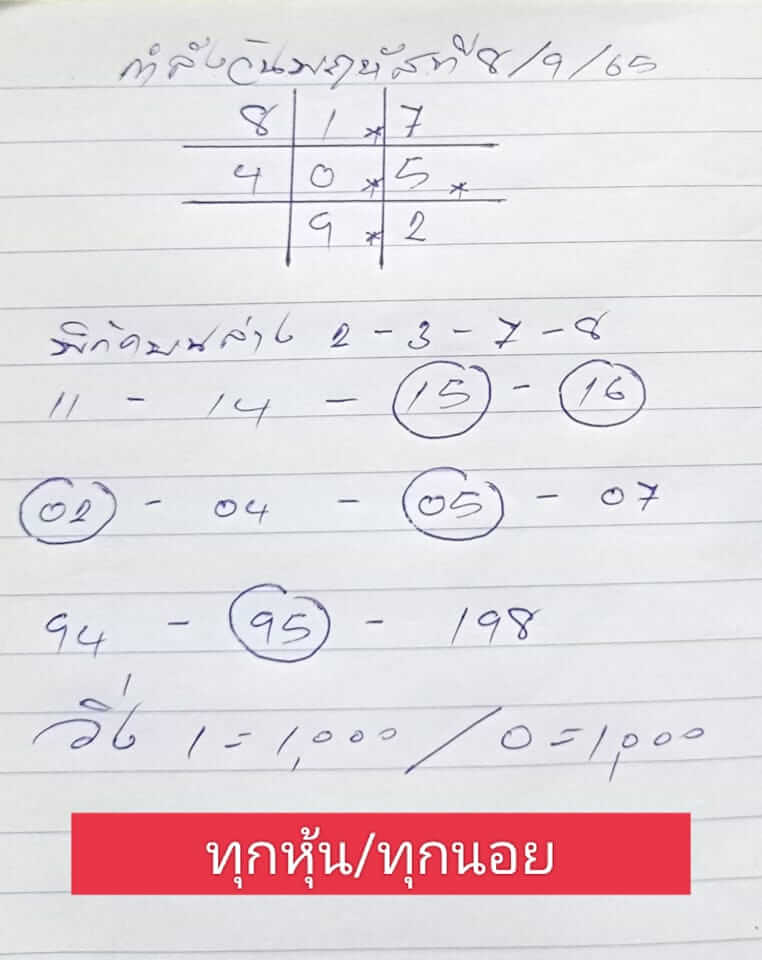 กำลังวันพฤหัสที่ 8/9/65
8 1 * 7
4 0 * 5 *
9 * 2
พิกัดบนล่าง 2 - 3 - 7 - 8
11 - 14 - 15 - 16
02 - 04 - 05 - 07
94 - 95 - 198
วิ่ง 1 = 1,000 / 0 = 1,000
ทุกหุ้น/ทุกนอย